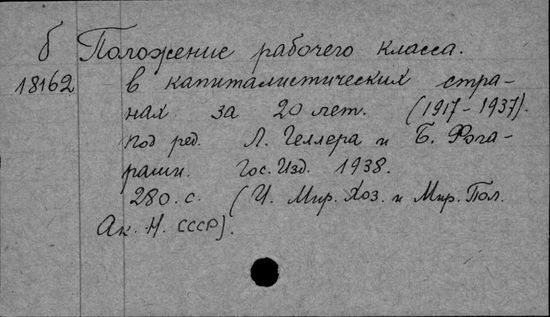 б Положение рабочего класса.
18162 в капиталистических стра-
нах за 20 лет. (1917-1937).
под ред. Л. Геллера и Б. Фога-
раши. Гос. Изд. 1938.
280. с. (И. Мир. Хоз. и Мир. Пол.
Ак. Н. СССР).